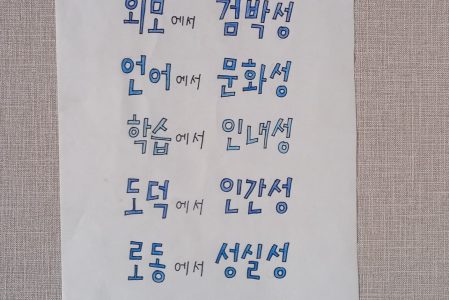 외모에서 검박성
언어에서 문화성
학습에서 인내성
도덕에서 인간성
로동에서 성실성